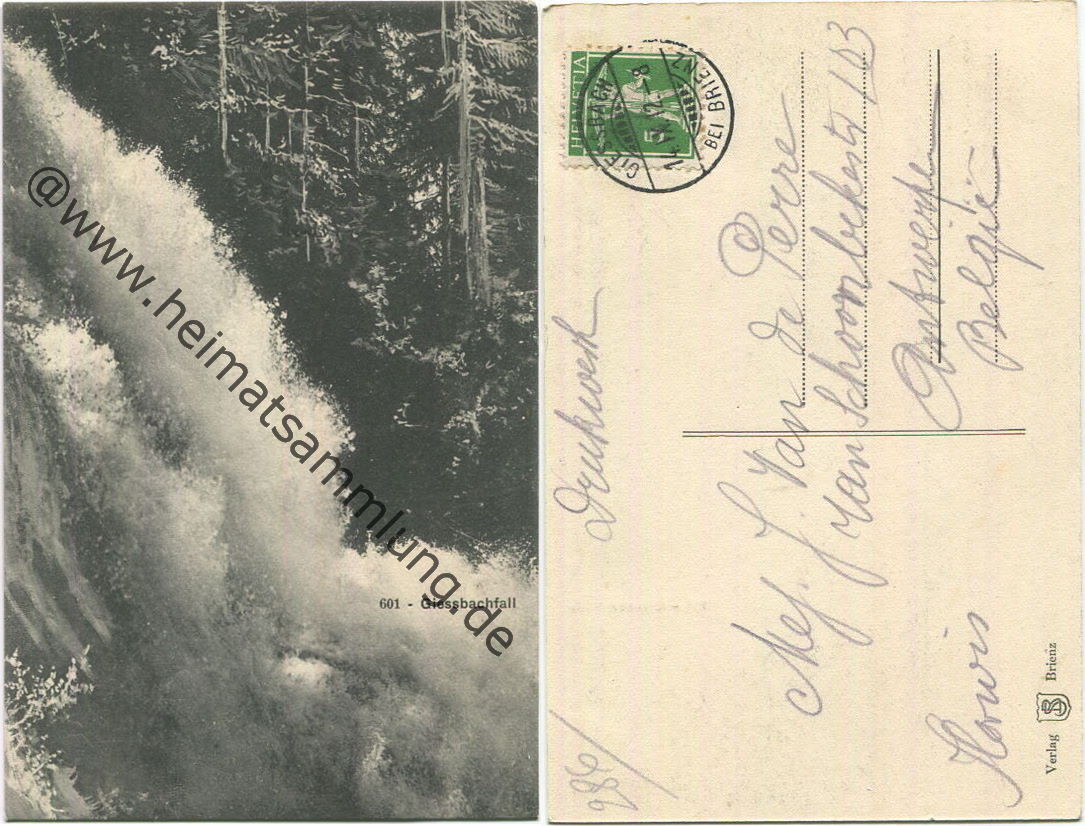 @www.heimatsammlung.de
601 - Giessbachfall
HELVETIA
5
GIESSBACH
BEI BRIENZ
Drukwerk
Mej. J. Van de Perre
Van Schoonbekestr 103
Antwerpen
België
286/
Verlag Brienz